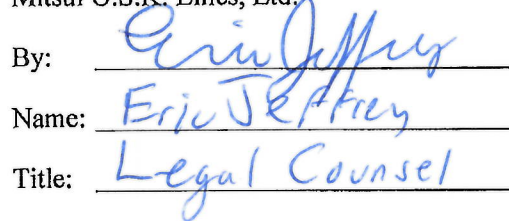 Mitsui O.S.K. Lines, Ltd.
By: Eric Jeffrey
Name: Eric Jeffrey
Title: Legal Counsel